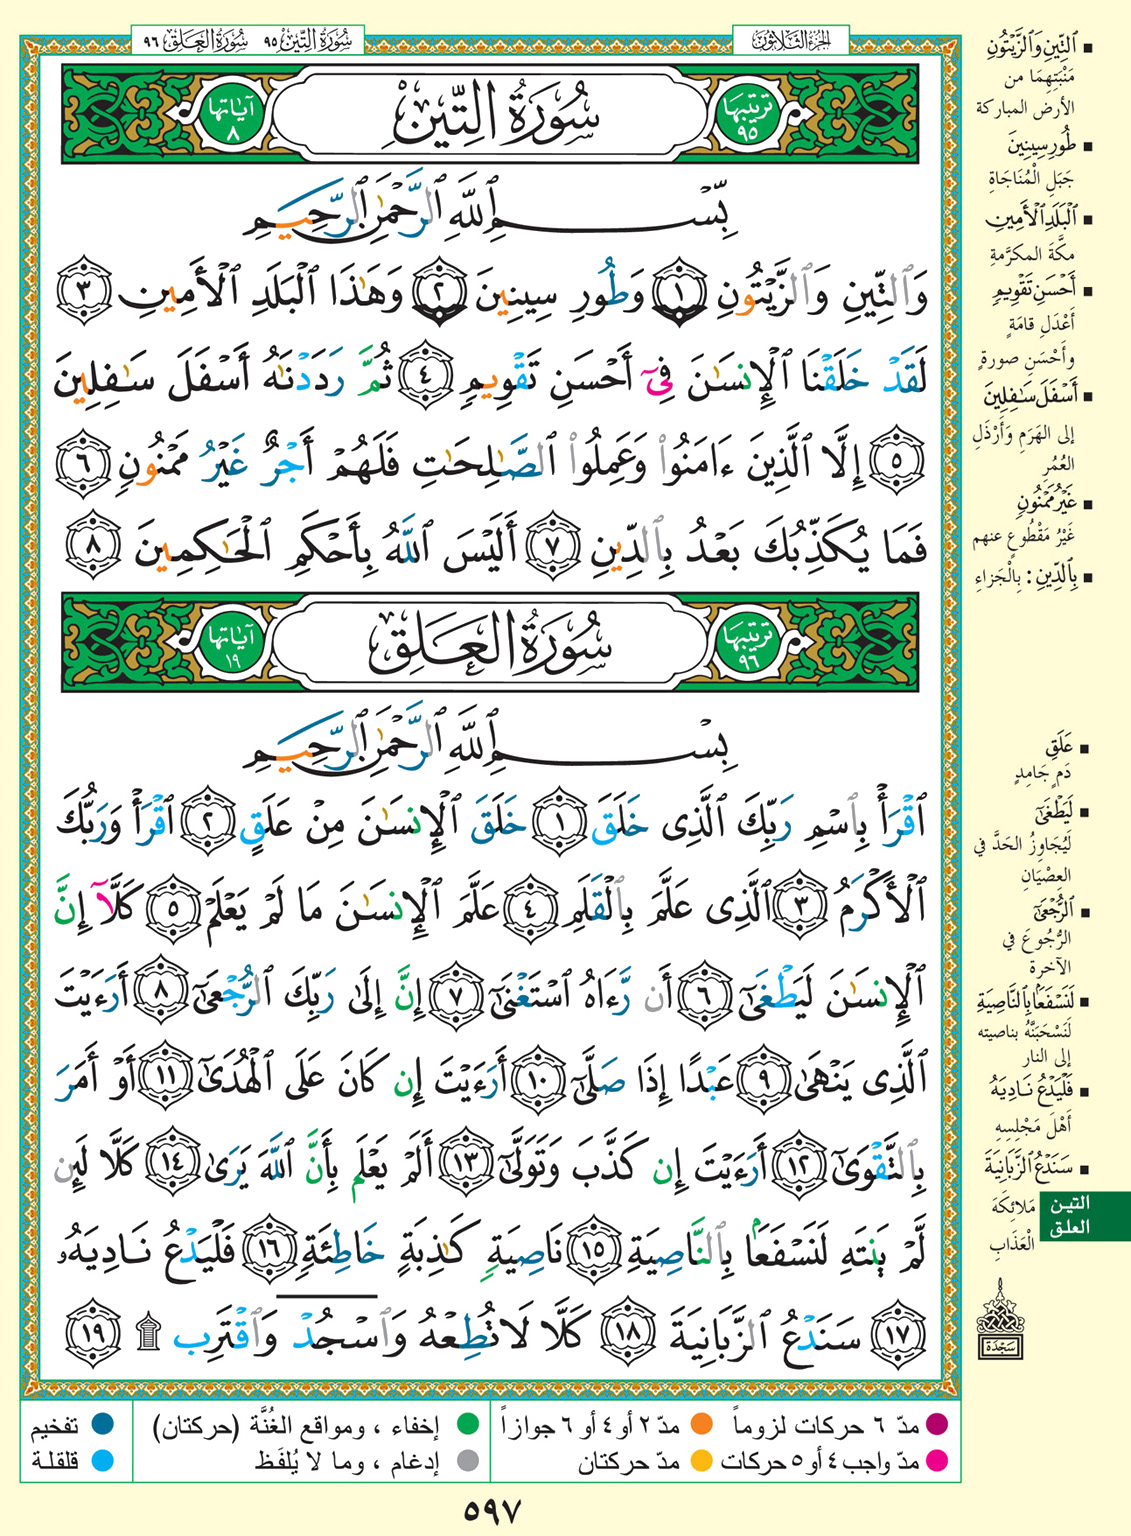 الجزء الثلاثون
سُورَةُ التِّينِ ٩٥ سُورَةُ العَلَقِ ٩٦
ترتيبها ٩٥
سُورَةُ التِّينِ
آياتها ٨
بِسْمِ ٱللَّهِ ٱلرَّحْمَٰنِ ٱلرَّحِيمِ
وَٱلتِّينِ وَٱلزَّيْتُونِ ١ وَطُورِ سِينِينَ ٢ وَهَٰذَا ٱلْبَلَدِ ٱلْأَمِينِ ٣
لَقَدْ خَلَقْنَا ٱلْإِنسَٰنَ فِىٓ أَحْسَنِ تَقْوِيمٍ ٤ ثُمَّ رَدَدْنَٰهُ أَسْفَلَ سَٰفِلِينَ
٥ إِلَّا ٱلَّذِينَ ءَامَنُوا۟ وَعَمِلُوا۟ ٱلصَّٰلِحَٰتِ فَلَهُمْ أَجْرٌ غَيْرُ مَمْنُونٍ ٦
فَمَا يُكَذِّبُكَ بَعْدُ بِٱلدِّينِ ٧ أَلَيْسَ ٱللَّهُ بِأَحْكَمِ ٱلْحَٰكِمِينَ ٨
ترتيبها ٩٦
سُورَةُ العَلَقِ
آياتها ١٩
بِسْمِ ٱللَّهِ ٱلرَّحْمَٰنِ ٱلرَّحِيمِ
ٱقْرَأْ بِٱسْمِ رَبِّكَ ٱلَّذِى خَلَقَ ١ خَلَقَ ٱلْإِنسَٰنَ مِنْ عَلَقٍ ٢ ٱقْرَأْ وَرَبُّكَ
ٱلْأَكْرَمُ ٣ ٱلَّذِى عَلَّمَ بِٱلْقَلَمِ ٤ عَلَّمَ ٱلْإِنسَٰنَ مَا لَمْ يَعْلَمْ ٥ كَلَّآ إِنَّ
ٱلْإِنسَٰنَ لَيَطْغَىٰٓ ٦ أَن رَّءَاهُ ٱسْتَغْنَىٰٓ ٧ إِنَّ إِلَىٰ رَبِّكَ ٱلرُّجْعَىٰٓ ٨ أَرَءَيْتَ
ٱلَّذِى يَنْهَىٰ ٩ عَبْدًا إِذَا صَلَّىٰٓ ١٠ أَرَءَيْتَ إِن كَانَ عَلَى ٱلْهُدَىٰٓ ١١ أَوْ أَمَرَ
بِٱلتَّقْوَىٰٓ ١٢ أَرَءَيْتَ إِن كَذَّبَ وَتَوَلَّىٰٓ ١٣ أَلَمْ يَعْلَم بِأَنَّ ٱللَّهَ يَرَىٰ ١٤ كَلَّا لَئِن
لَّمْ يَنتَهِ لَنَسْفَعًۢا بِٱلنَّاصِيَةِ ١٥ نَاصِيَةٍ كَٰذِبَةٍ خَاطِئَةٍ ١٦ فَلْيَدْعُ نَادِيَهُۥ
١٧ سَنَدْعُ ٱلزَّبَانِيَةَ ١٨ كَلَّا لَا تُطِعْهُ وَٱسْجُدْ وَٱقْتَرِب ۩ ١٩
▪ ٱلتِّينِ وَٱلزَّيْتُونِ
مَنْبَتِهِمَا من
الأرض المباركة
▪ طُورِ سِينِينَ
جَبَلِ الْمُنَاجَاةِ
▪ ٱلْبَلَدِ ٱلْأَمِينِ
مكَّةَ المكرَّمةِ
▪ أَحْسَنِ تَقْوِيمٍ
أَعْدَلِ قامَةٍ
وأَحْسَنِ صورةٍ
▪ أَسْفَلَ سَٰفِلِينَ
إلى الهَرَمِ وَأَرْذَلِ
العُمُرِ
▪ غَيْرُ مَمْنُونٍ
غَيْرُ مَقْطُوعٍ عنهم
▪ بِٱلدِّينِ : بِالْجَزاءِ
▪ عَلَقٍ
دَمٍ جَامِدٍ
▪ لَيَطْغَىٰٓ
لَيُجَاوِزُ الحَدَّ في
العِصْيَانِ
▪ ٱلرُّجْعَىٰٓ
الرُّجُوعَ في
الآخرة
▪ لَنَسْفَعًۢا بِٱلنَّاصِيَةِ
لَنَسْحَبَنَّهُ بناصيته
إلى النار
▪ فَلْيَدْعُ نَادِيَهُ
أَهْلَ مَجْلِسِهِ
▪ سَنَدْعُ ٱلزَّبَانِيَةَ
مَلائِكَةَ
الْعَذَابِ
التين
العلق
سَجْدَة
مدّ ٦ حركات لزوماً
مدّ ٢ أو ٤ أو ٦ جوازاً
إخفاء ، ومواقع الغُنَّة (حركتان)
تفخيم
مدّ واجب ٤ أو ٥ حركات
مدّ حركتان
إدغام ، وما لا يُلفَظ
قلقلة
٥٩٧